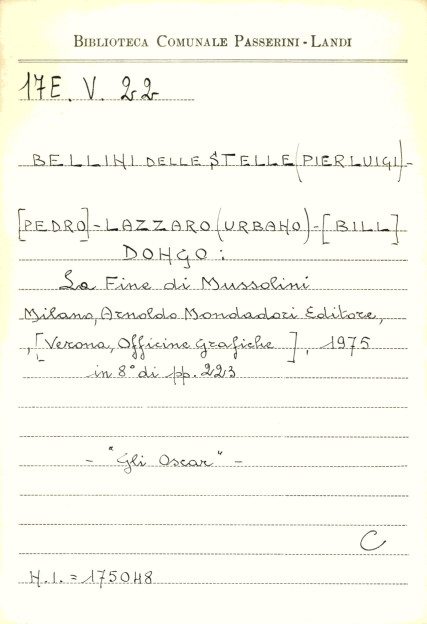 BIBLIOTECA COMUNALE PASSERINI - LANDI
17E. V. 22
BELLINI DELLE STELLE (PIER LUIGI) -
[PEDRO] - LAZZARO (URBANO) - [BILL]
DONGO :
La Fine di Mussolini
Milano, Arnoldo Mondadori Editore,
, [Verona, Officine Grafiche ], 1975
in 8° di pp. 223
- "Gli Oscar" -
C
N.I. = 175048